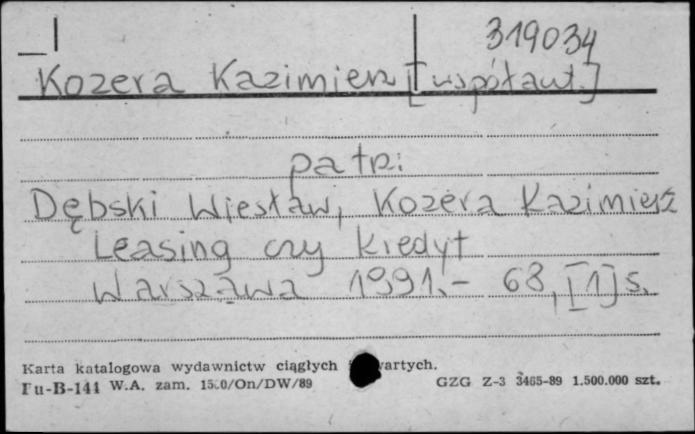 319034
Kozera Kazimierz [współaut.]
patrz:
Dębski Wiesław, Kozera Kazimierz
Leasing czy kredyt
Warszawa 1991.- 68,[1] s.
Karta katalogowa wydawnictw ciągłych
Pu-B-141 W.A. zam. /On/DW/89
GZG Z-3 3465-89 1.500.000 szt.